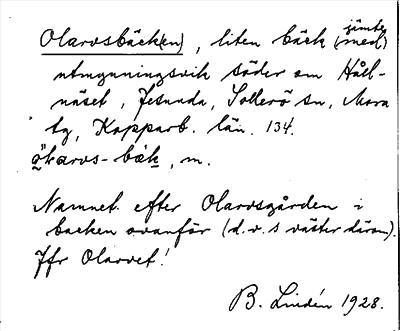 Olarvsbäck(en), liten bäck jämte (med)
utmynningsvik söder om Håll-
näset, Gesunda, Sollerö sn, Mora
tg, Kopparb. län. 134.
-bäk, m.
Namnet efter Olarvsgården i
backen ovanför (d.v.s väster därom).
Jfr Olarvet!
B. Lindén 1928.